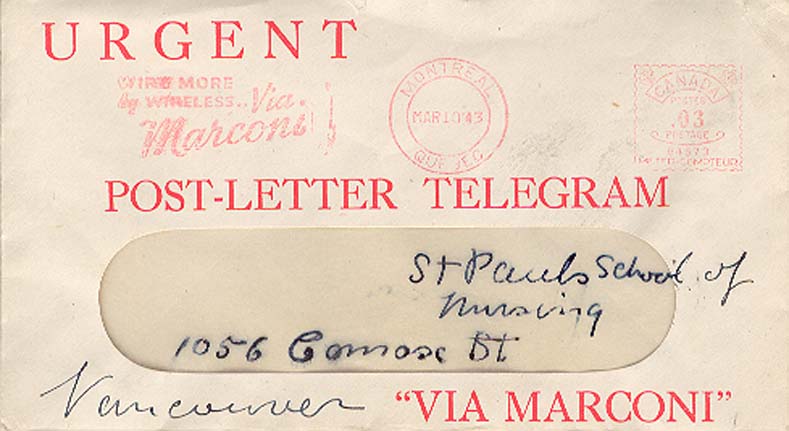 URGENT
WIRE MORE
by WIRELESS.. Via
Marconi
MONTREAL
MAR 10 43
QUEBEC
CANADA
POSTES
.03
POSTAGE
METER-COMPTEUR
POST-LETTER TELEGRAM
St Pauls School of
Nursing
1056 Comox St
Vancouver
"VIA MARCONI"